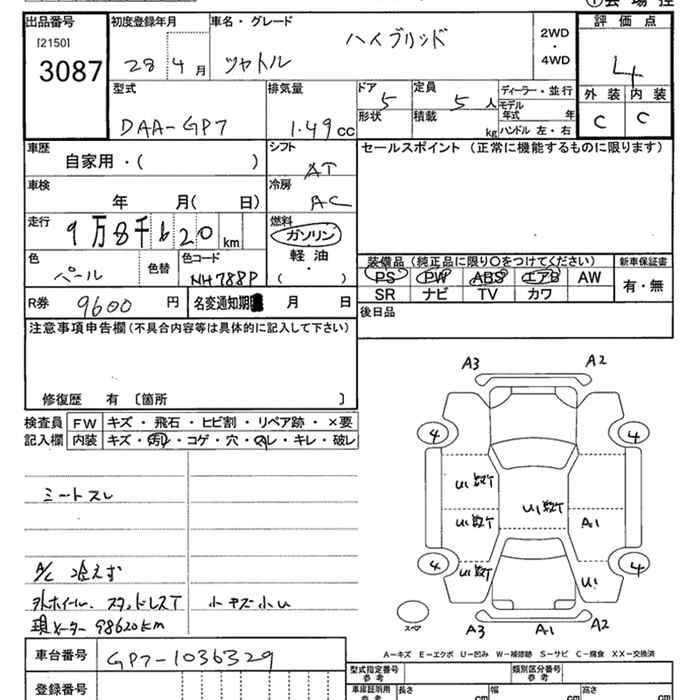 ①会場控
出品番号
[2150]
3087
初度登録年月
28 4月
車名・グレード
シャトル ハイブリッド
2WD
・
4WD
評価点
4
外装 内装
C C
型式
DAA-GP7
排気量
1.49cc
ドア 5
形状
定員 5人
積載 kg
ディーラー・並行
モデル年式 年
ハンドル 左・右
車歴
自家用・( )
シフト
AT
セールスポイント (正常に機能するものに限ります)
車検
年 月( 日)
冷房
AC
走行
9万8千620km
燃料
ガソリン
軽油
( ・ )
色
パール
色替
色コード
NH788P
装備品 (純正品に限り○をつけてください)
新車保証書
PS PW ABS エアB AW
SR ナビ TV カワ
有・無
R券 9600円
名変通知期 月 日
後日品
注意事項申告欄(不具合内容等は具体的に記入して下さい)
修復歴 有 〔箇所 〕
検査員
記入欄
FW キズ・飛石・ヒビ割・リペア跡・×要
内装 キズ・汚レ・コゲ・穴・スレ・キレ・破レ
シートスレ
A/C 冷えず
外ホイール、スタッドレスT 小キズ小U
現メーター98620km
A3 A2
4 4
U1 U1 U1 A1
4 4
U1 U1
スペア
A3 A1 A2
A−キズ E−エクボ U−凹み W−補修跡 S−サビ C−腐食 XX−交換済
車台番号
GP7-1036329
登録番号
型式指定番号
参考
類別区分番号
参考
車庫証明用
参考
長さ cm
幅 cm
高さ cm